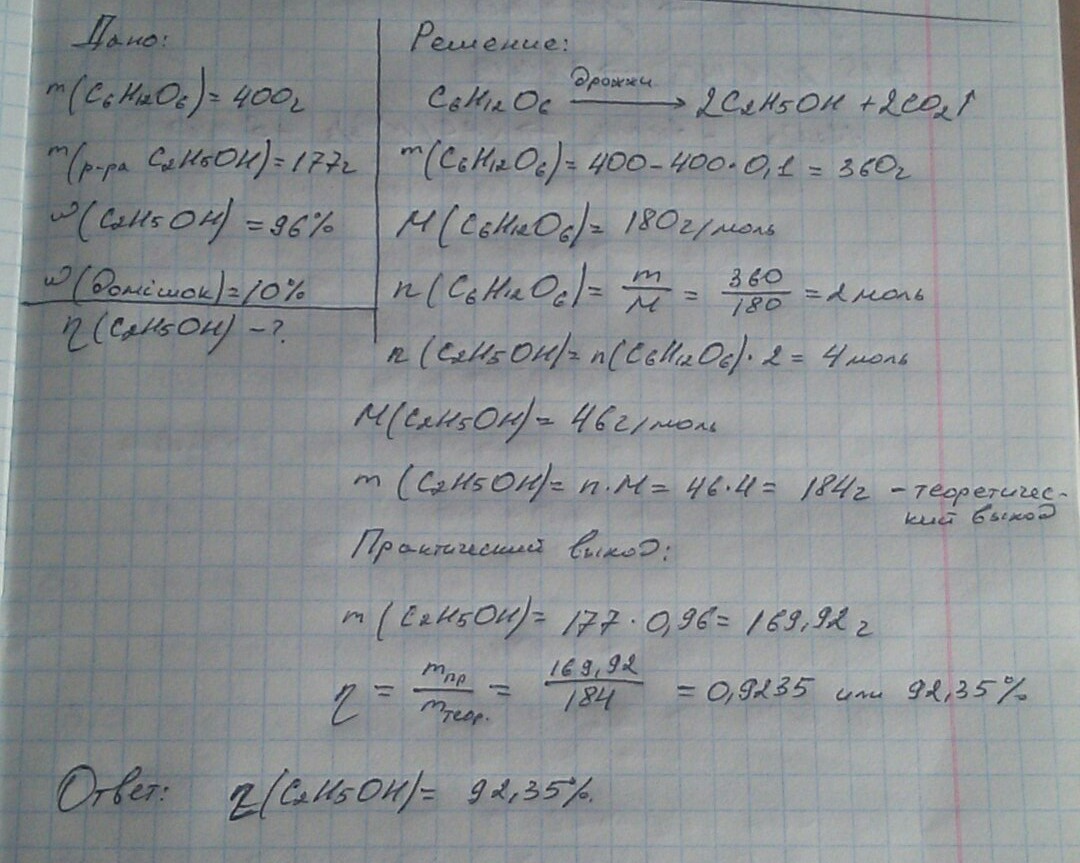 Дано:
m(C6H12O6)=400г
m(р-ра C2H5OH)=177г
ω(C2H5OH)=96%
ω(домішок)=10%
η(C2H5OH)-?
Решение:
дрожжи
C6H12O6 → 2C2H5OH+2CO2↑
m(C6H12O6)=400-400·0,1=360г
M(C6H12O6)=180г/моль
n(C6H12O6)= m/M = 360/180 =2моль
n(C2H5OH)=n(C6H12O6)·2=4моль
M(C2H5OH)=46г/моль
m(C2H5OH)=n·M=46·4=184г -теоретичес-
кий выход
Практический выход:
m(C2H5OH)=177·0,96=169,92г
η = mпр/mтеор. = 169,92/184 =0,9235 или 92,35%
Ответ: η(C2H5OH)= 92,35%.